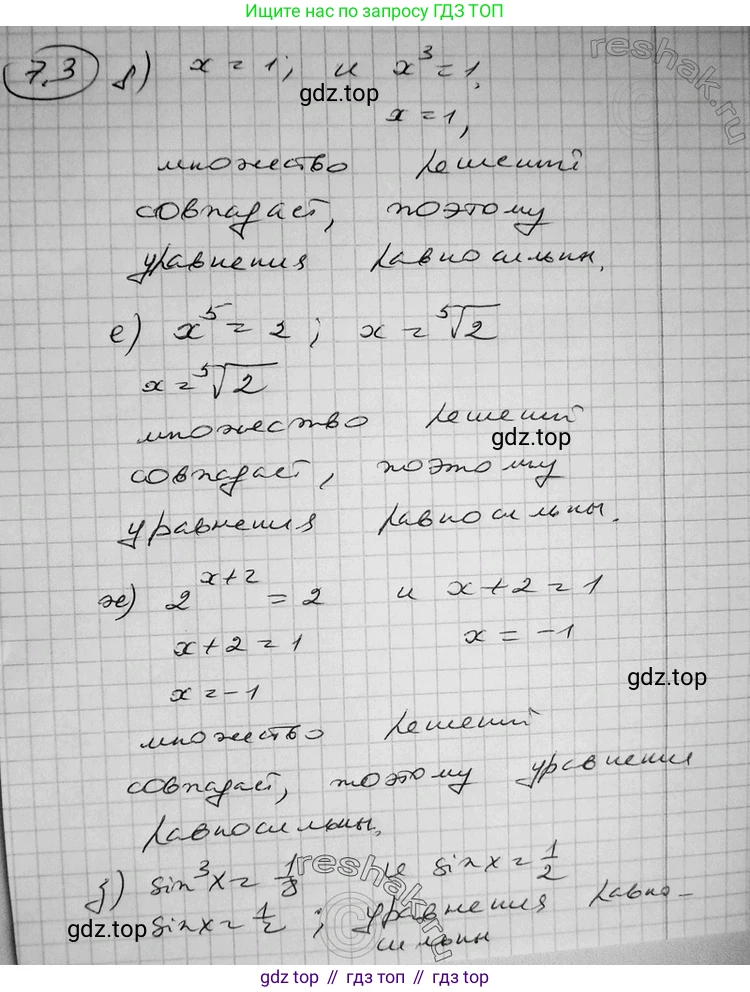 Ищите нас по запросу ГДЗ ТОП
7.3 д) x = 1; и x³ = 1,
gdz.top
reshak.ru
x = 1,
множество решений
совпадает, поэтому
уравнения равносильн.
е) x⁵ = 2; x = ⁵√2
x = ⁵√2
множество решений
gdz.top
совпадает, поэтому
уравнения равносильны.
ж) 2^(x+2) = 2 и x + 2 = 1
x + 2 = 1 x = -1
gdz.top
x = -1
множество решений
совпадает, поэтому уравнения
равносильны.
з) sin³x = 1/8 и sin x = 1/2
reshak.ru
sin x = 1/2; уравнения равно-
gdz.top
сильн
gdz top // гдз топ // gdz.top